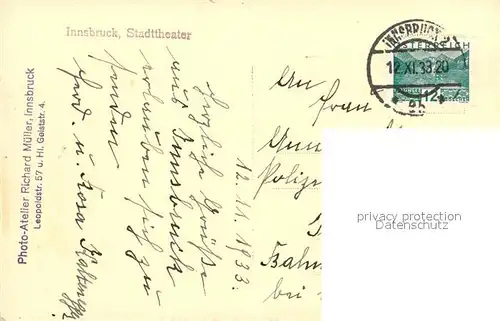 Innsbruck, Stadttheater
Photo-Atelier Richard Müller, Innsbruck
Leopoldstr. 57 u. Hl. Geiststr. 4.
12.11.1933.
Herzliche Grüße
aus Innsbruck
erlauben sich zu
senden
Ferd. u. Rosa
An
Frau
Polizei
Bahn
bei
INNSBRUCK 2
12.XI.33.20
ÖSTERREICH
12
privacy protection
Datenschutz